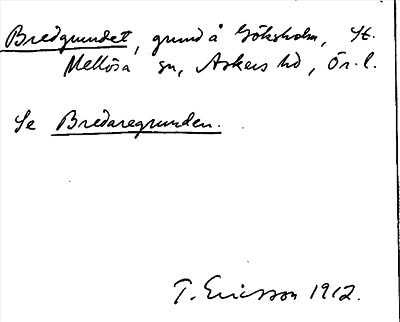 Bredgrundet, grund å Göksholm, St.
Mellösa sn, Askers hd, Ör. l.
Se Bredaregrunden.
T. Ericsson 1912.